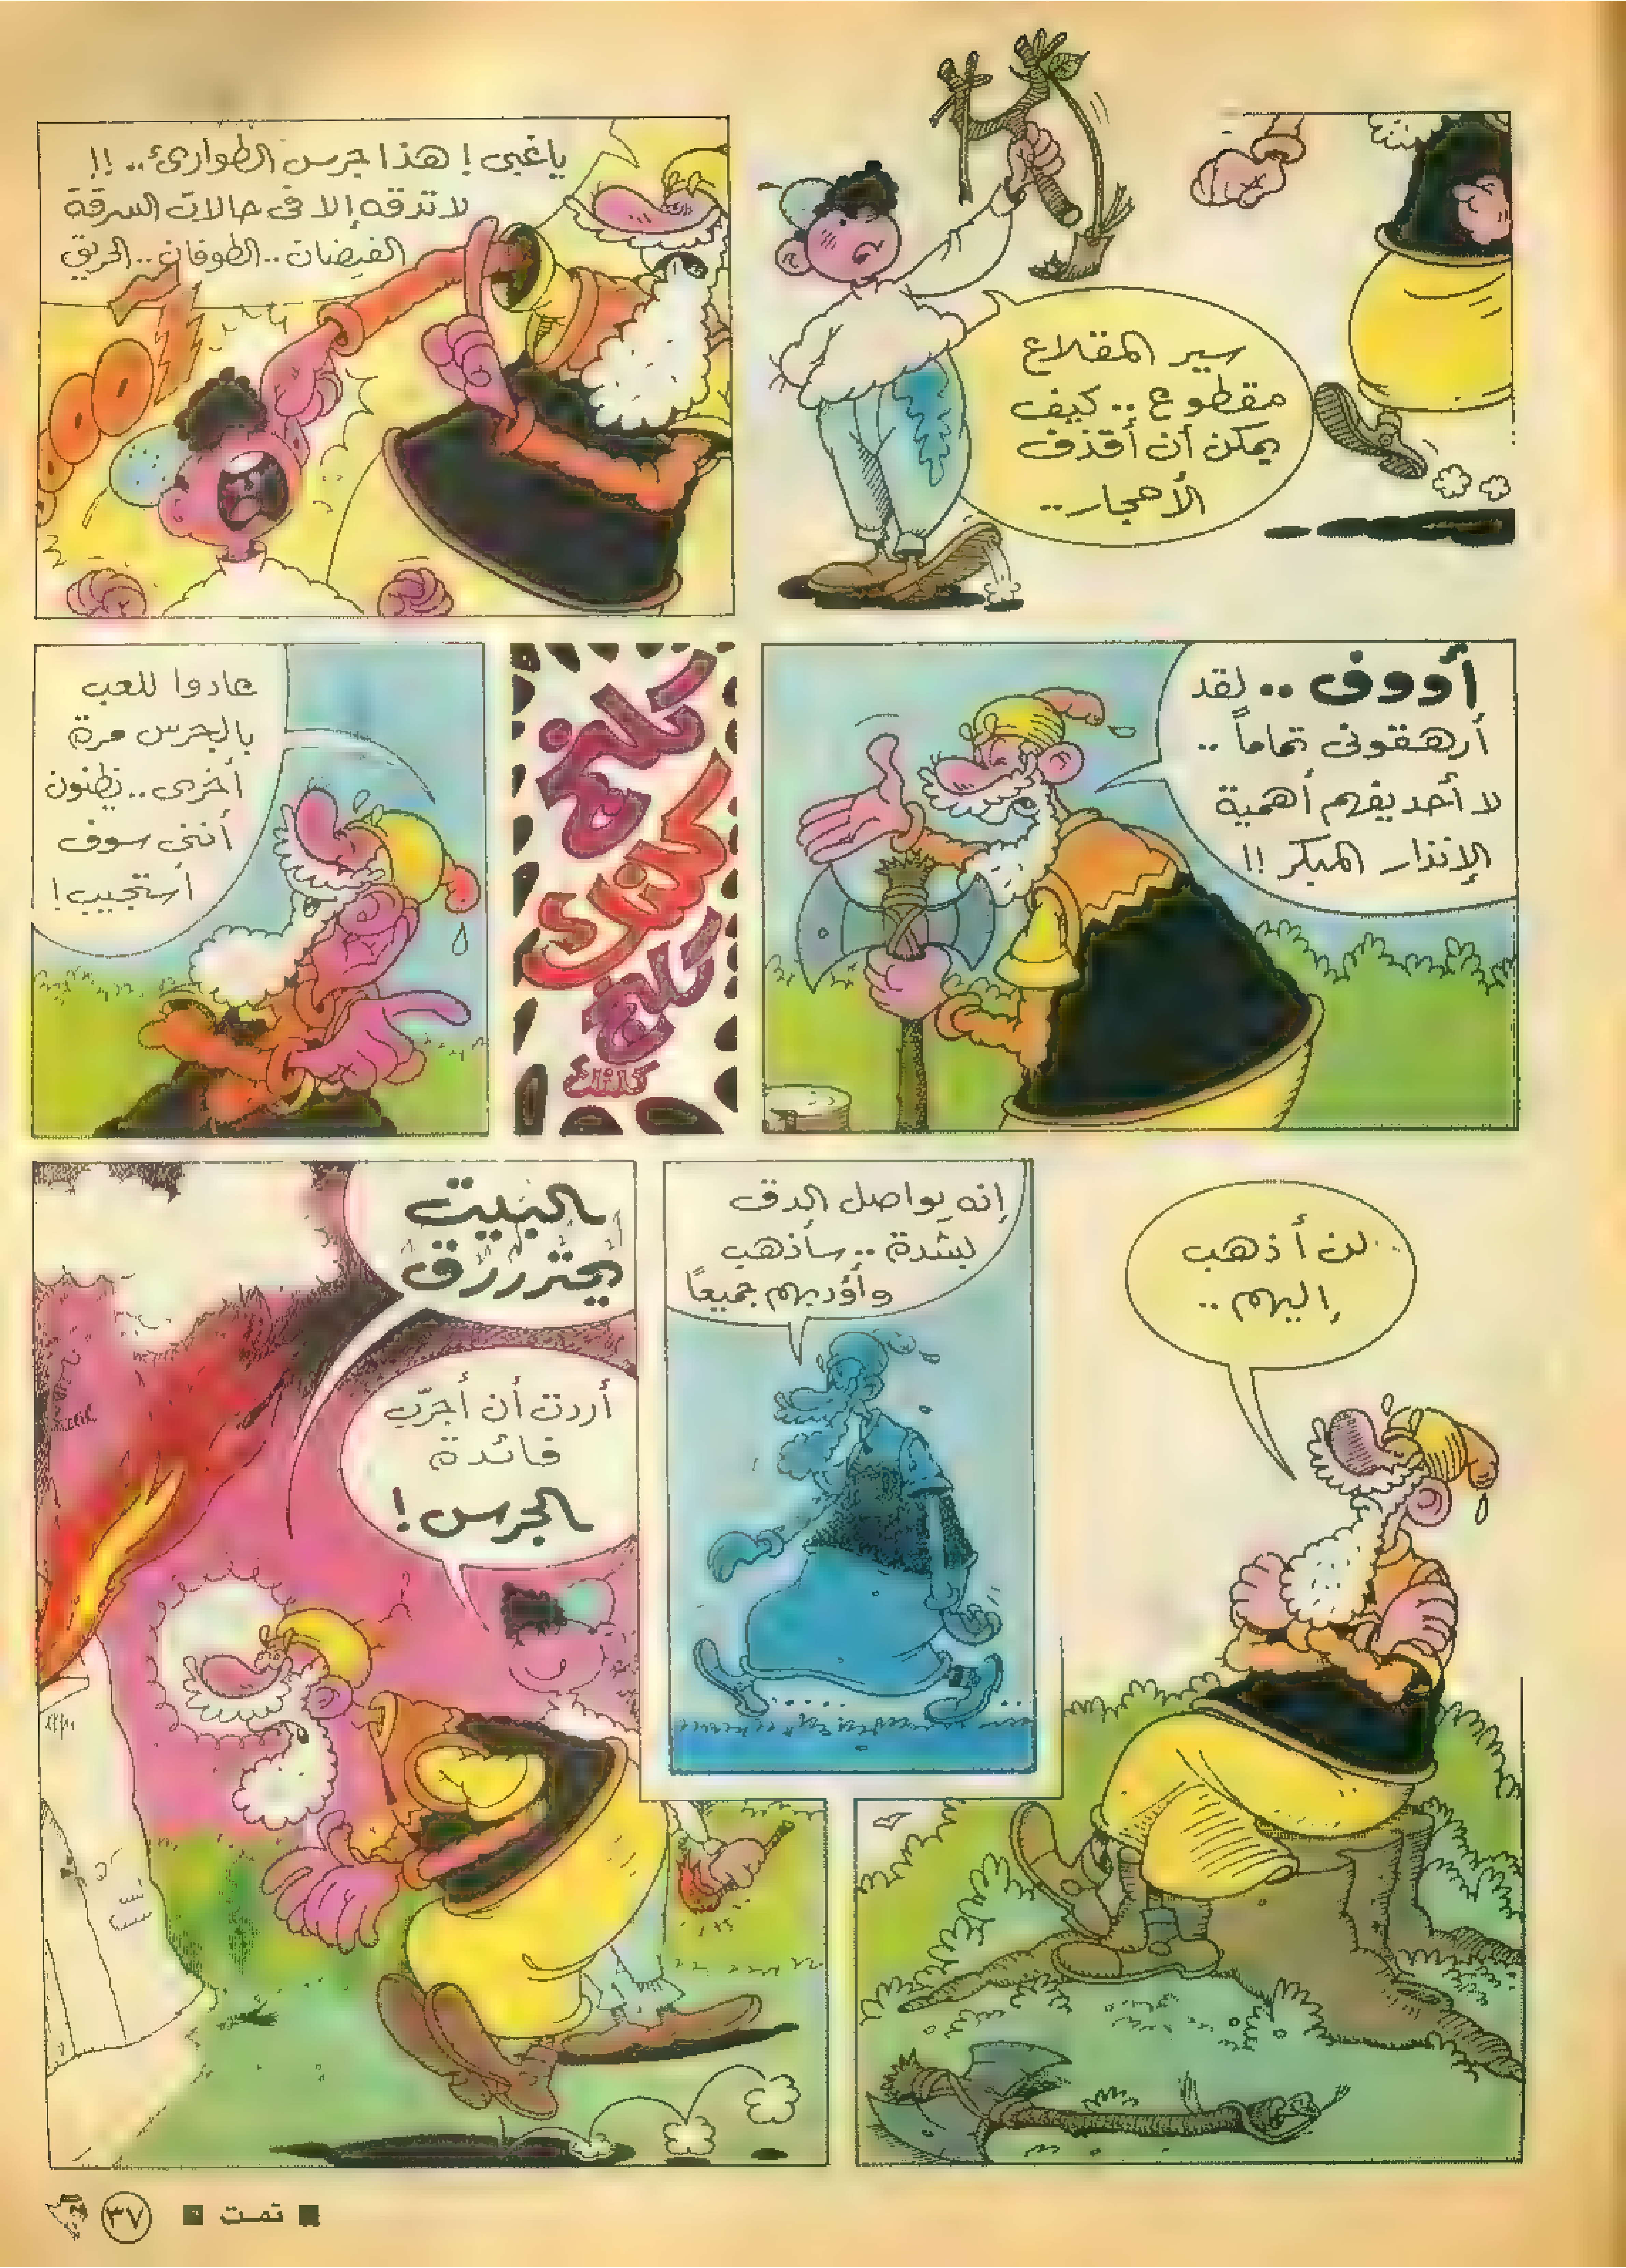 سير المقلاع
مقطوع .. كيف
يمكن أن أقذف
الأحجار ..
يا غبي ! هذا جرس الطوارئ .. !!
لا تدقه إلا في حالات السرقة
الفيضان .. الطوفان .. الحريق
أووف .. لقد
أرهقوني تماماً ..
لا أحد يفهم أهمية
الإنذار المبكر !!
كلنج
كلنك
كلنج
كلنك
عادوا للعب
بالجرس مرة
أخرى .. يظنون
أنني سوف
أستجيب !
لن أذهب
إليهم ..
إنه يواصل الدق
بشدة .. سأذهب
وأؤدبهم جميعاً
البييت
يحترررق
أردت أن أجرّب
فائدة
الجرس !
■ تمت ■
٣٧